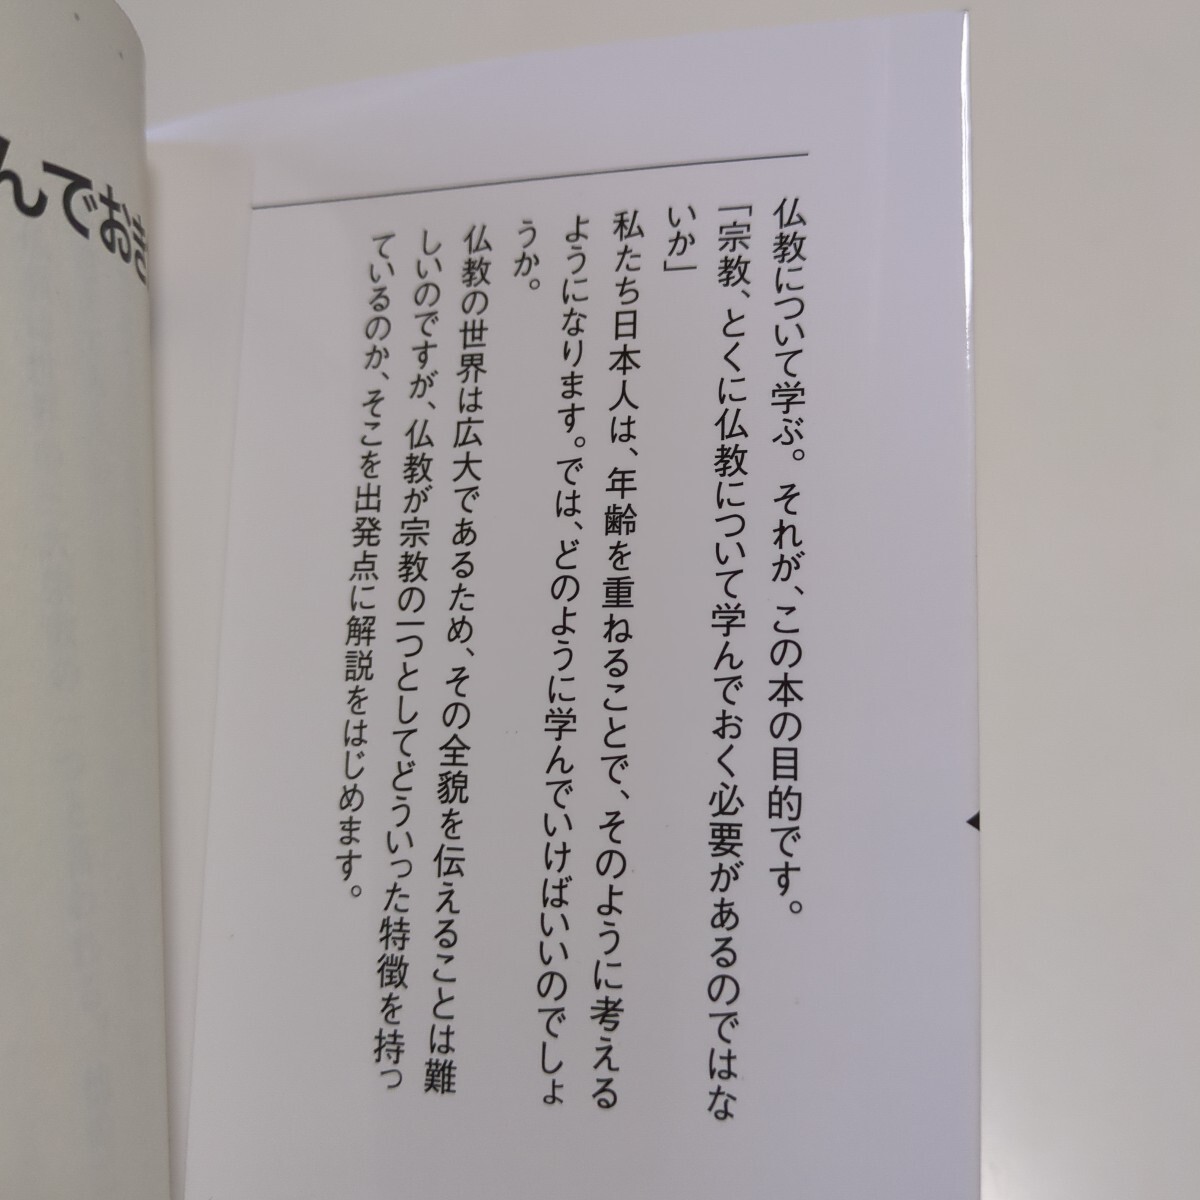 仏教について学ぶ。それが、この本の目的です。
「宗教、とくに仏教について学んでおく必要があるのではな
いか」
私たち日本人は、年齢を重ねることで、そのように考える
ようになります。では、どのように学んでいけばいいのでしょ
うか。
仏教の世界は広大であるため、その全貌を伝えることは難
しいのですが、仏教が宗教の一つとしてどういった特徴を持っ
ているのか、そこを出発点に解説をはじめます。
んでおき